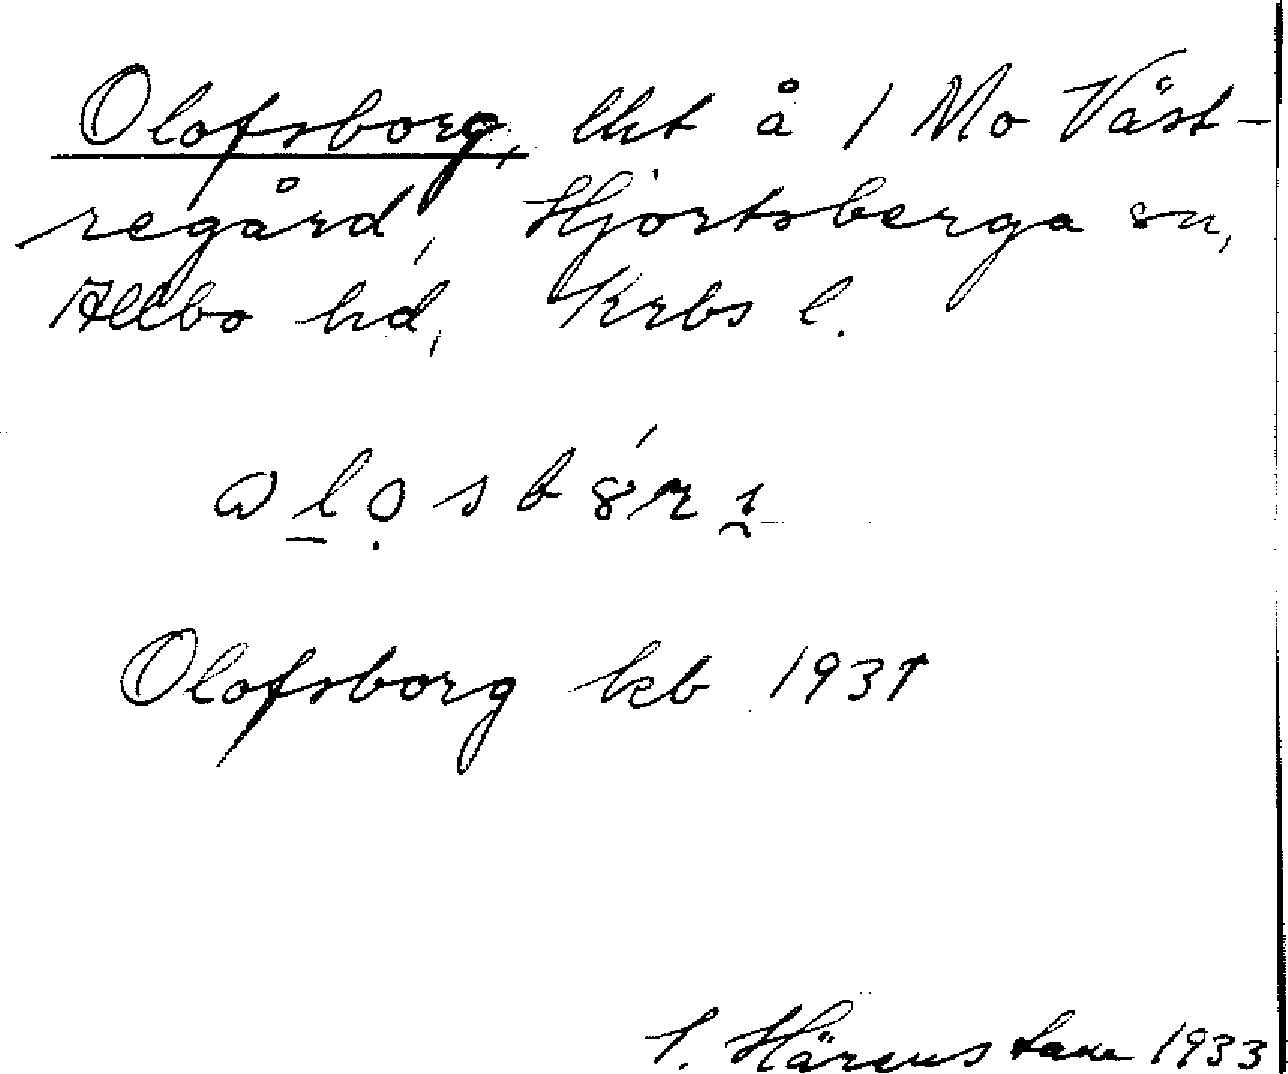 Olofsborg, lht å 1 Mo Väst-
regård, Hjortsberga sn,
Allbo hd, Krbs l.
Olofsborg kb 1931
S. Härenstam 1933